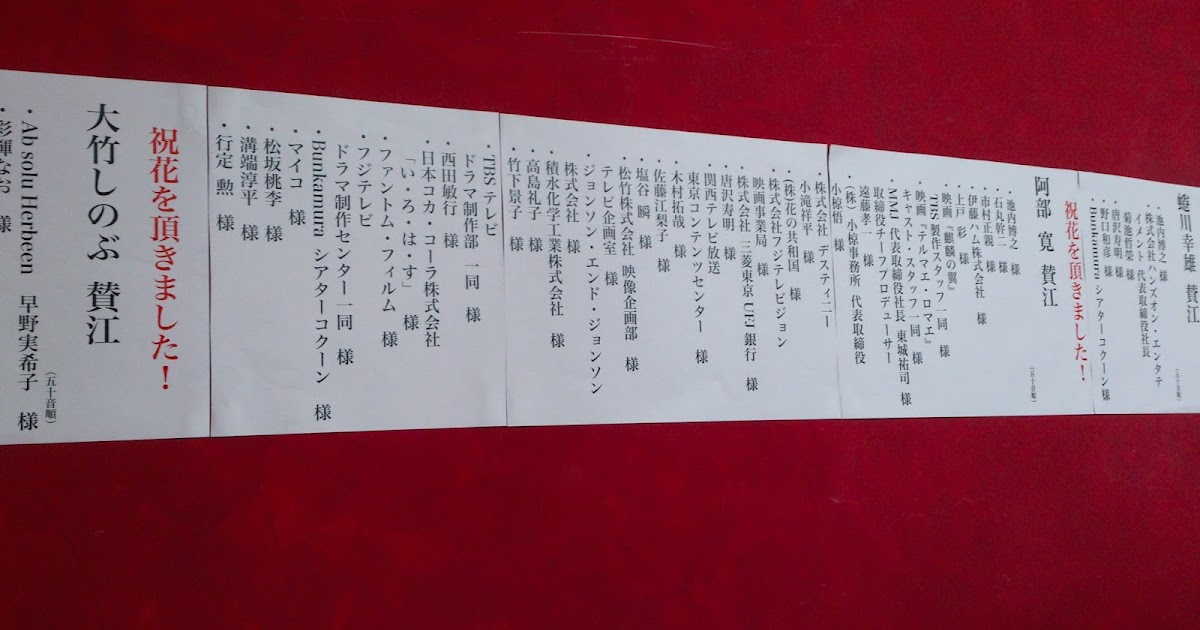 蜷川幸雄 賛江
(五十音順)
・池内博之 様
・株式会社ハンズオン・エンタテ
イメント 代表取締役社長
菊池哲榮 様
・唐沢寿明 様
・野口和彦 様
・Bunkamura シアターコクーン様
祝花を頂きました!
阿部 寛 賛江
(五十音順)
・池内博之 様
・石丸幹二 様
・市村正親 様
・伊藤ハム株式会社 様
・上戸 彩 様
・映画『麒麟の翼』
TBS 製作スタッフ一同 様
・映画『テルマエ・ロマエ』
キャスト・スタッフ一同 様
・NMJ 代表取締役社長 東城祐司 様
取締役チーフプロデューサー
遠藤孝一 様
・(株)小椋事務所 代表取締役
小椋悟 様
・株式会社 デスティニー
小滝祥平 様
・(株)花の共和国 様
・株式会社フジテレビジョン
映画事業局 様
・株式会社 三菱東京UFJ銀行 様
・唐沢寿明 様
・関西テレビ放送
東京コンテンツセンター 様
・木村拓哉 様
・佐藤江梨子 様
・塩谷 瞬 様
・松竹株式会社 映像企画部 様
テレビ企画室 様
・ジョンソン・エンド・ジョンソン
株式会社 様
・積水化学工業株式会社 様
・高島礼子 様
・竹下景子 様
・TBSテレビ
ドラマ制作部 一同 様
・西田敏行 様
・日本コカ・コーラ株式会社
「い・ろ・は・す」 様
・ファントム・フィルム 様
・フジテレビ
ドラマ制作センター一同 様
・Bunkamura シアターコクーン 様
・マイコ 様
・松坂桃李 様
・溝端淳平 様
・行定 勲 様
祝花を頂きました!
大竹しのぶ 賛江
(五十音順)
・Ab solu Herbeen 早野実希子 様
・彩輝なお 様